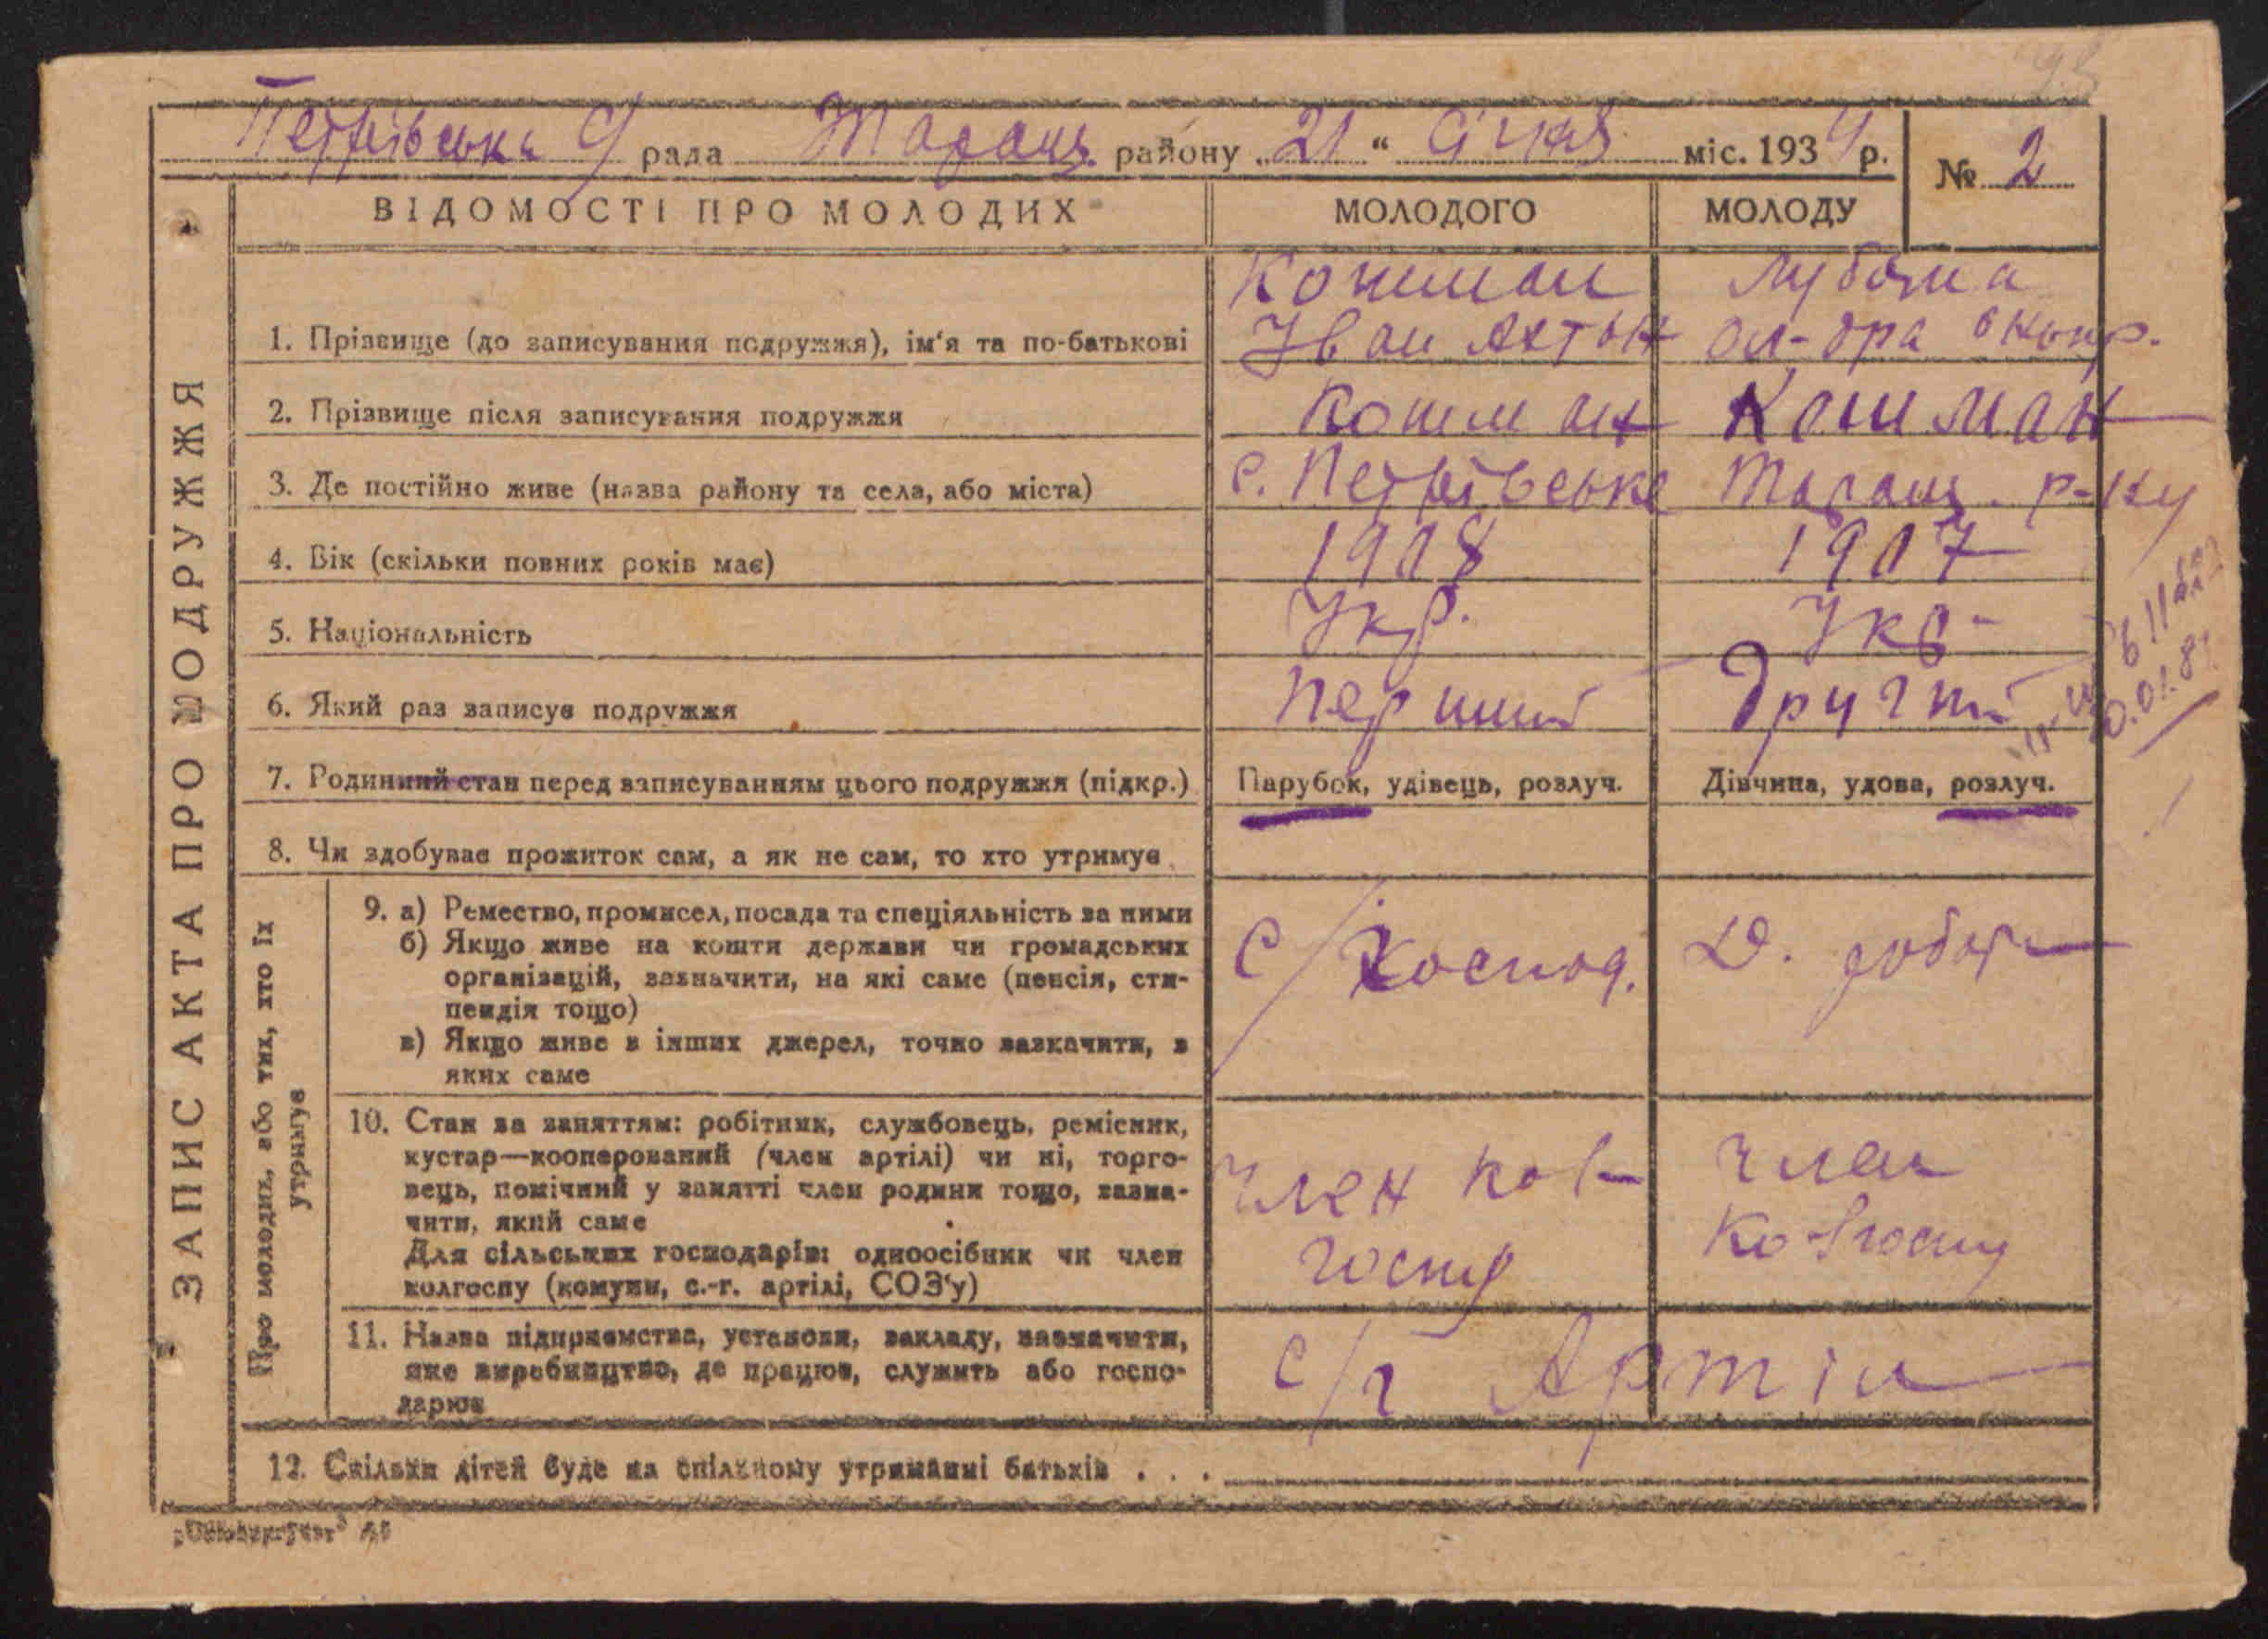 Петрівська с/ рада Таращ. району „21“ січня міс. 1934 р. № 2
ЗАПИС АКТА ПРО ШОДРУЖЖЯ
ВІДОМОСТІ ПРО МОЛОДИХ МОЛОДОГО МОЛОДУ
Кошман
1. Прізвище (до записування подружжя), ім'я та по-батькові Іван Антон
2. Прізвище після записування подружжя Кошман Кошман
3. Де постійно живе (назва району та села, або міста) с. Петрівське Таращ. р-ну
4. Вік (скільки повних років має) 1908 1907
5. Національність Укр. Укр-
6. Який раз записує подружжя перший другий
7. Родинний стан перед записуванням цього подружжя (підкр.) Парубок, удівець, розлуч. Дівчина, удова, розлуч.
8. Чи здобуває прожиток сам, а як не сам, то хто утримує
Про молодих, або тих, хто їх утримує
9. а) Ремество, промисел, посада та спеціяльність за ними
б) Якщо живе на кошти держави чи громадських
організацій, зазначити, на які саме (пенсія, сти-
пендія тощо)
в) Якщо живе з інших джерел, точно зазначити, з
яких саме
с/господ. Д. робот
10. Стан за заняттям: робітник, службовець, ремісник,
кустар—кооперований (член артілі) чи ні, торго-
вець, помічний у занятті член родини тощо, зазна-
чити, який саме
Для сільських господарів: одноосібник чи член
колгоспу (комуни, с.-г. артілі, СОЗ'у)
член кол-
госпу
член
колгоспу
11. Назва підприємства, установи, закладу, зазначити,
яке виробництво, де працює, служить або госпо-
дарює
с/г Артіл
12. Скільки дітей буде на спільному утриманні батьків . . .